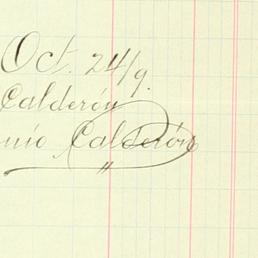 Oct. 24/9.
Calderón
nio Calderón
"